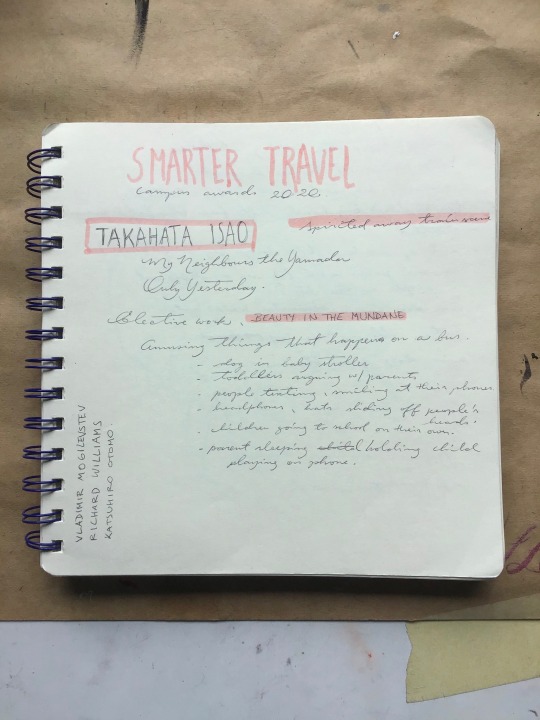 SMARTER TRAVEL
campus awards 2020
TAKAHATA ISAO
spirited away train scene
My Neighbours the Yamadas
Only Yesterday.
Elective work. BEAUTY IN THE MUNDANE
Amusing things that happens on a bus.
- dog in baby stroller
- toddlers arguing w/ parents
- people texting, smiling at their phones
- headphones, hats sliding off people's heads.
- children going to school on their own.
- parent sleeping child holding child
playing on phone.
VLADIMIR MOGILEVSTEV
RICHARD WILLIAMS
KATSUHIRO OTOMO